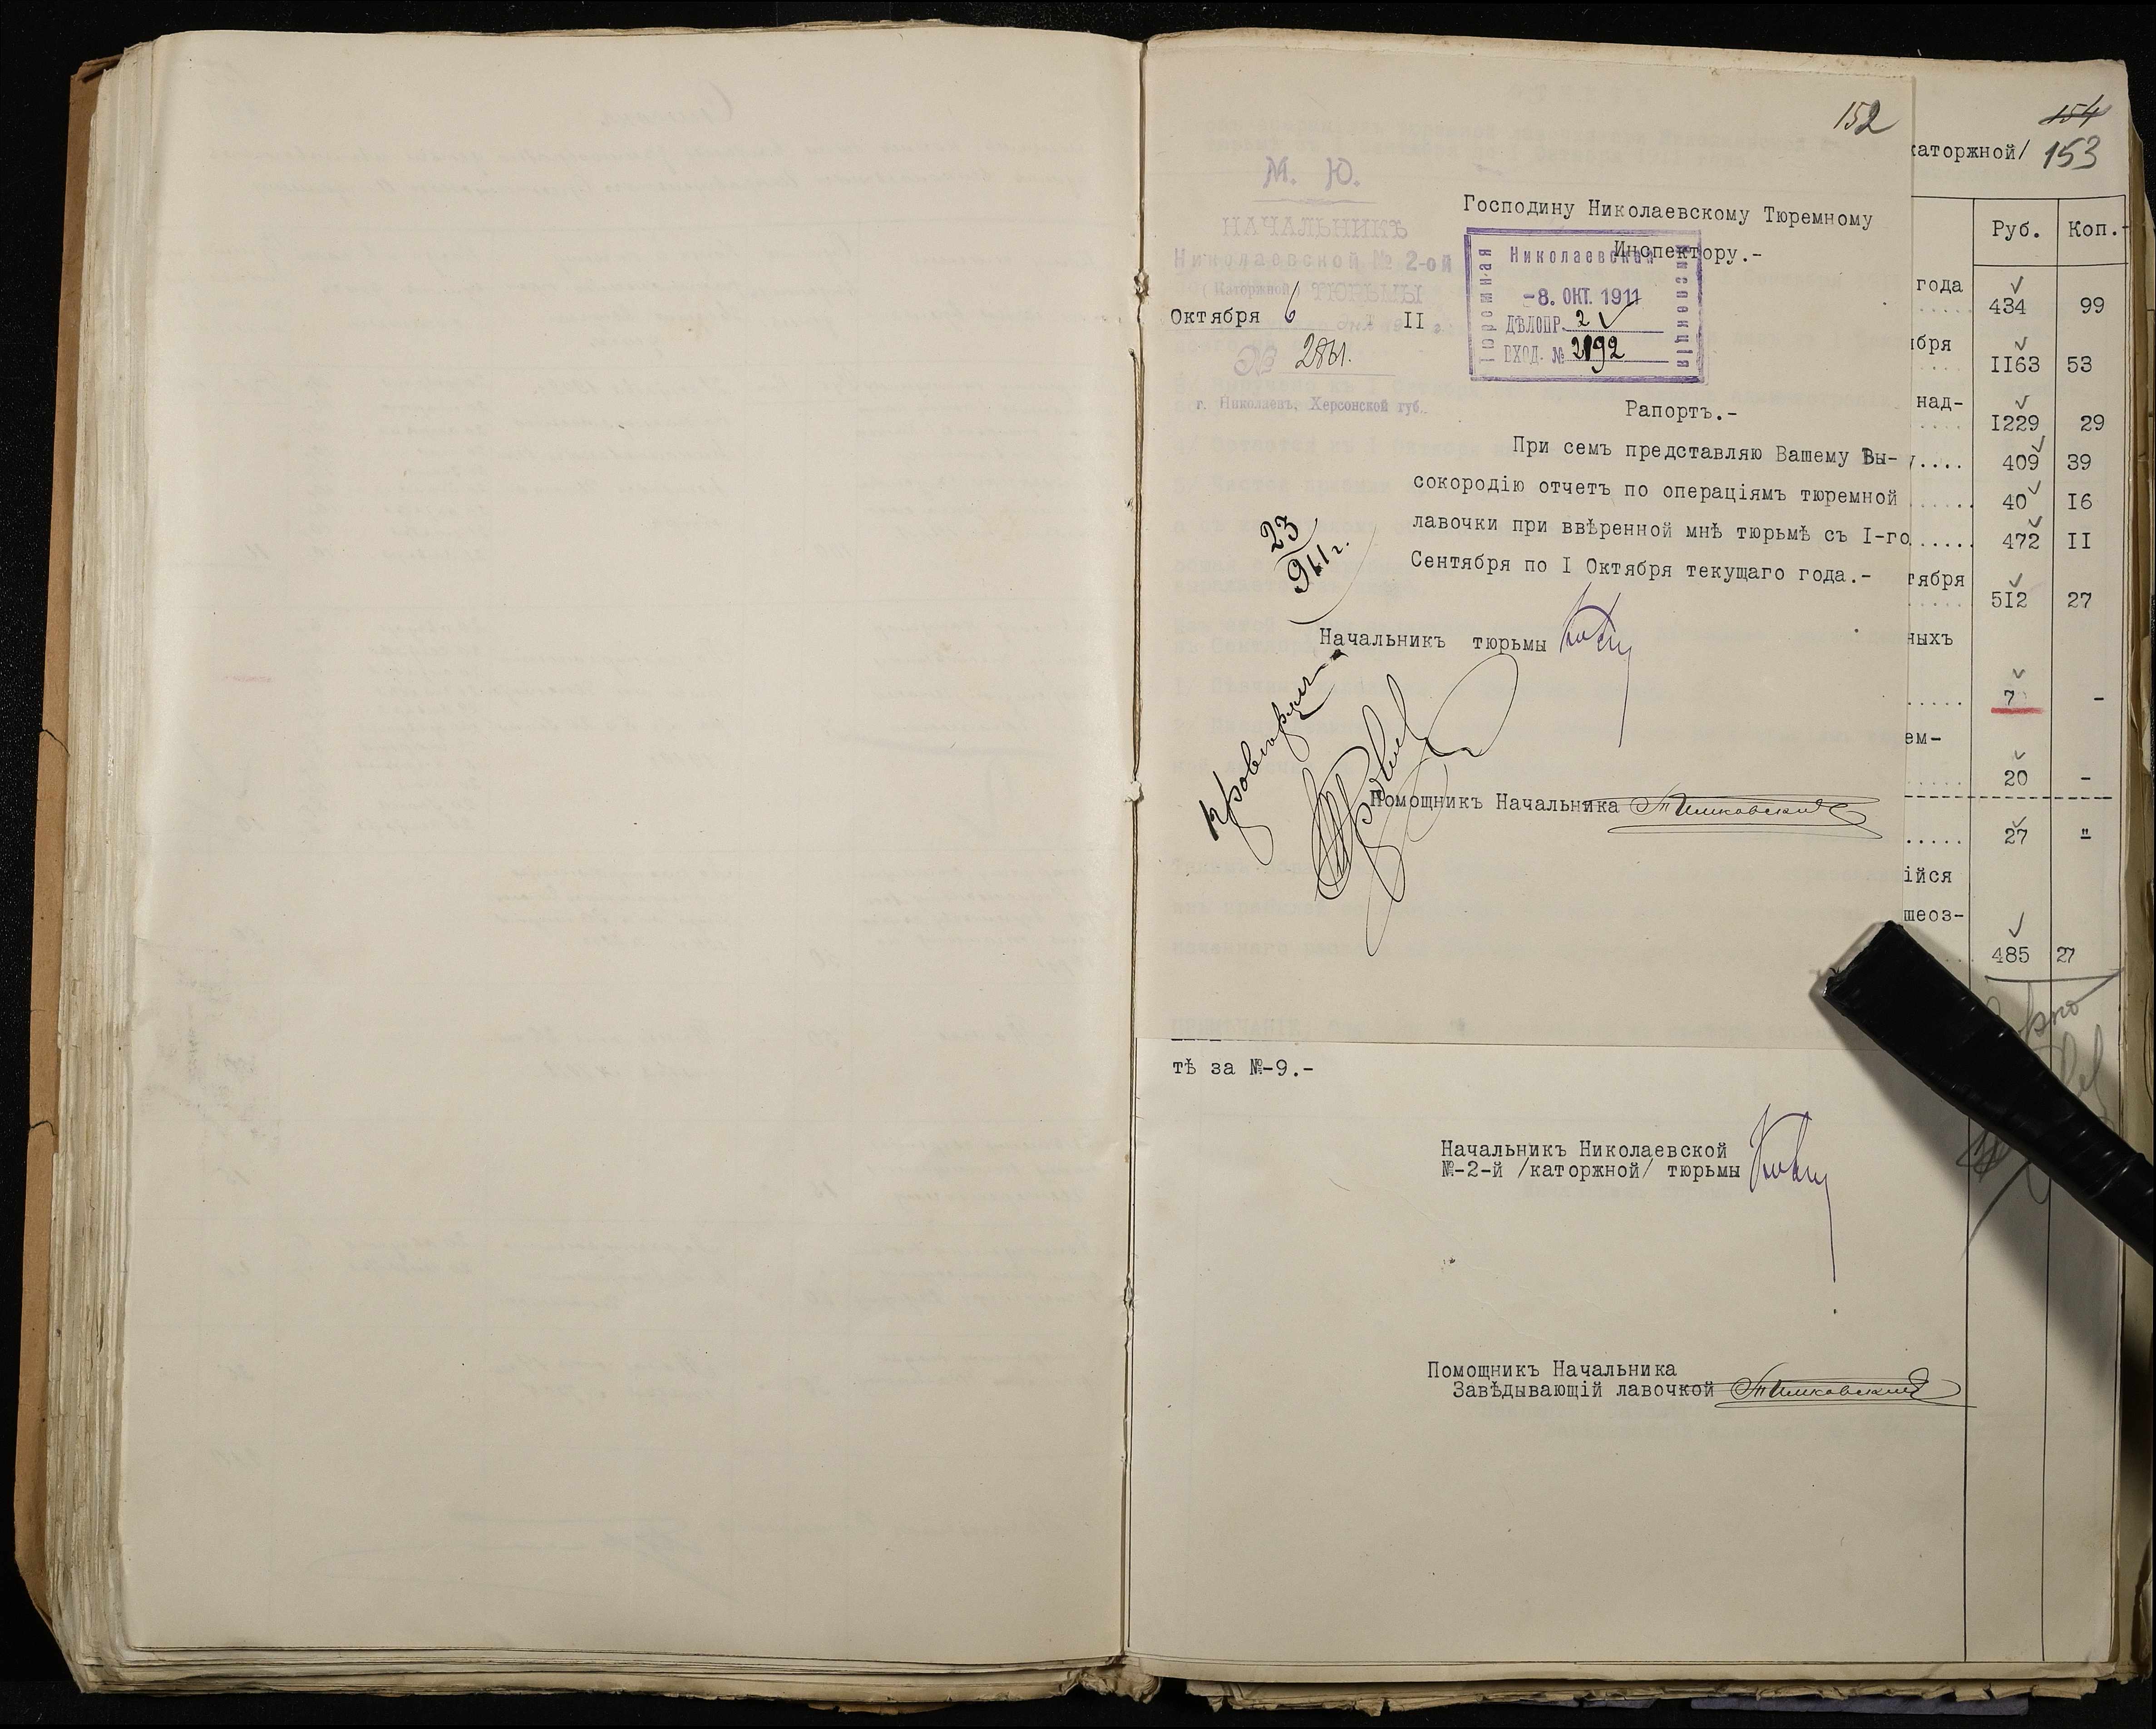 152
М. Ю.
НАЧАЛЬНИКЪ
Николаевской № 2-ой
(Каторжной) ТЮРЬМЫ
Октября 6 II
№ 2861.
г. Николаевъ, Херсонской губ.
Господину Николаевскому Тюремному
Инспектору.-
Николаевская
Тюремная
Инспекція
-8. ОКТ. 1911
ДѢЛОПР. 2
ВХОД. № 2192
Рапортъ.-
При семъ представляю Вашему Вы-
сокородію отчетъ по операціямъ тюремной
лавочки при ввѣренной мнѣ тюрьмѣ съ I-го
Сентября по I Октября текущаго года.-
23
911 г.
Начальникъ тюрьмы
Помощникъ Начальника
154
каторжной/ 153
Руб. Коп.-
года
..... 434 99
ября
.... II63 53
над-
.... I229 29
.... 409 39
...... 40 I6
...... 472 II
тября
..... 5I2 27
ныхъ
..... 7 -
ем-
..... 20 -
..... 27 "
ійся
шеоз-
485 27
тѣ за №-9.-
Начальникъ Николаевской
№-2-й /каторжной/ тюрьмы
Помощникъ Начальника
Завѣдывающій лавочкой